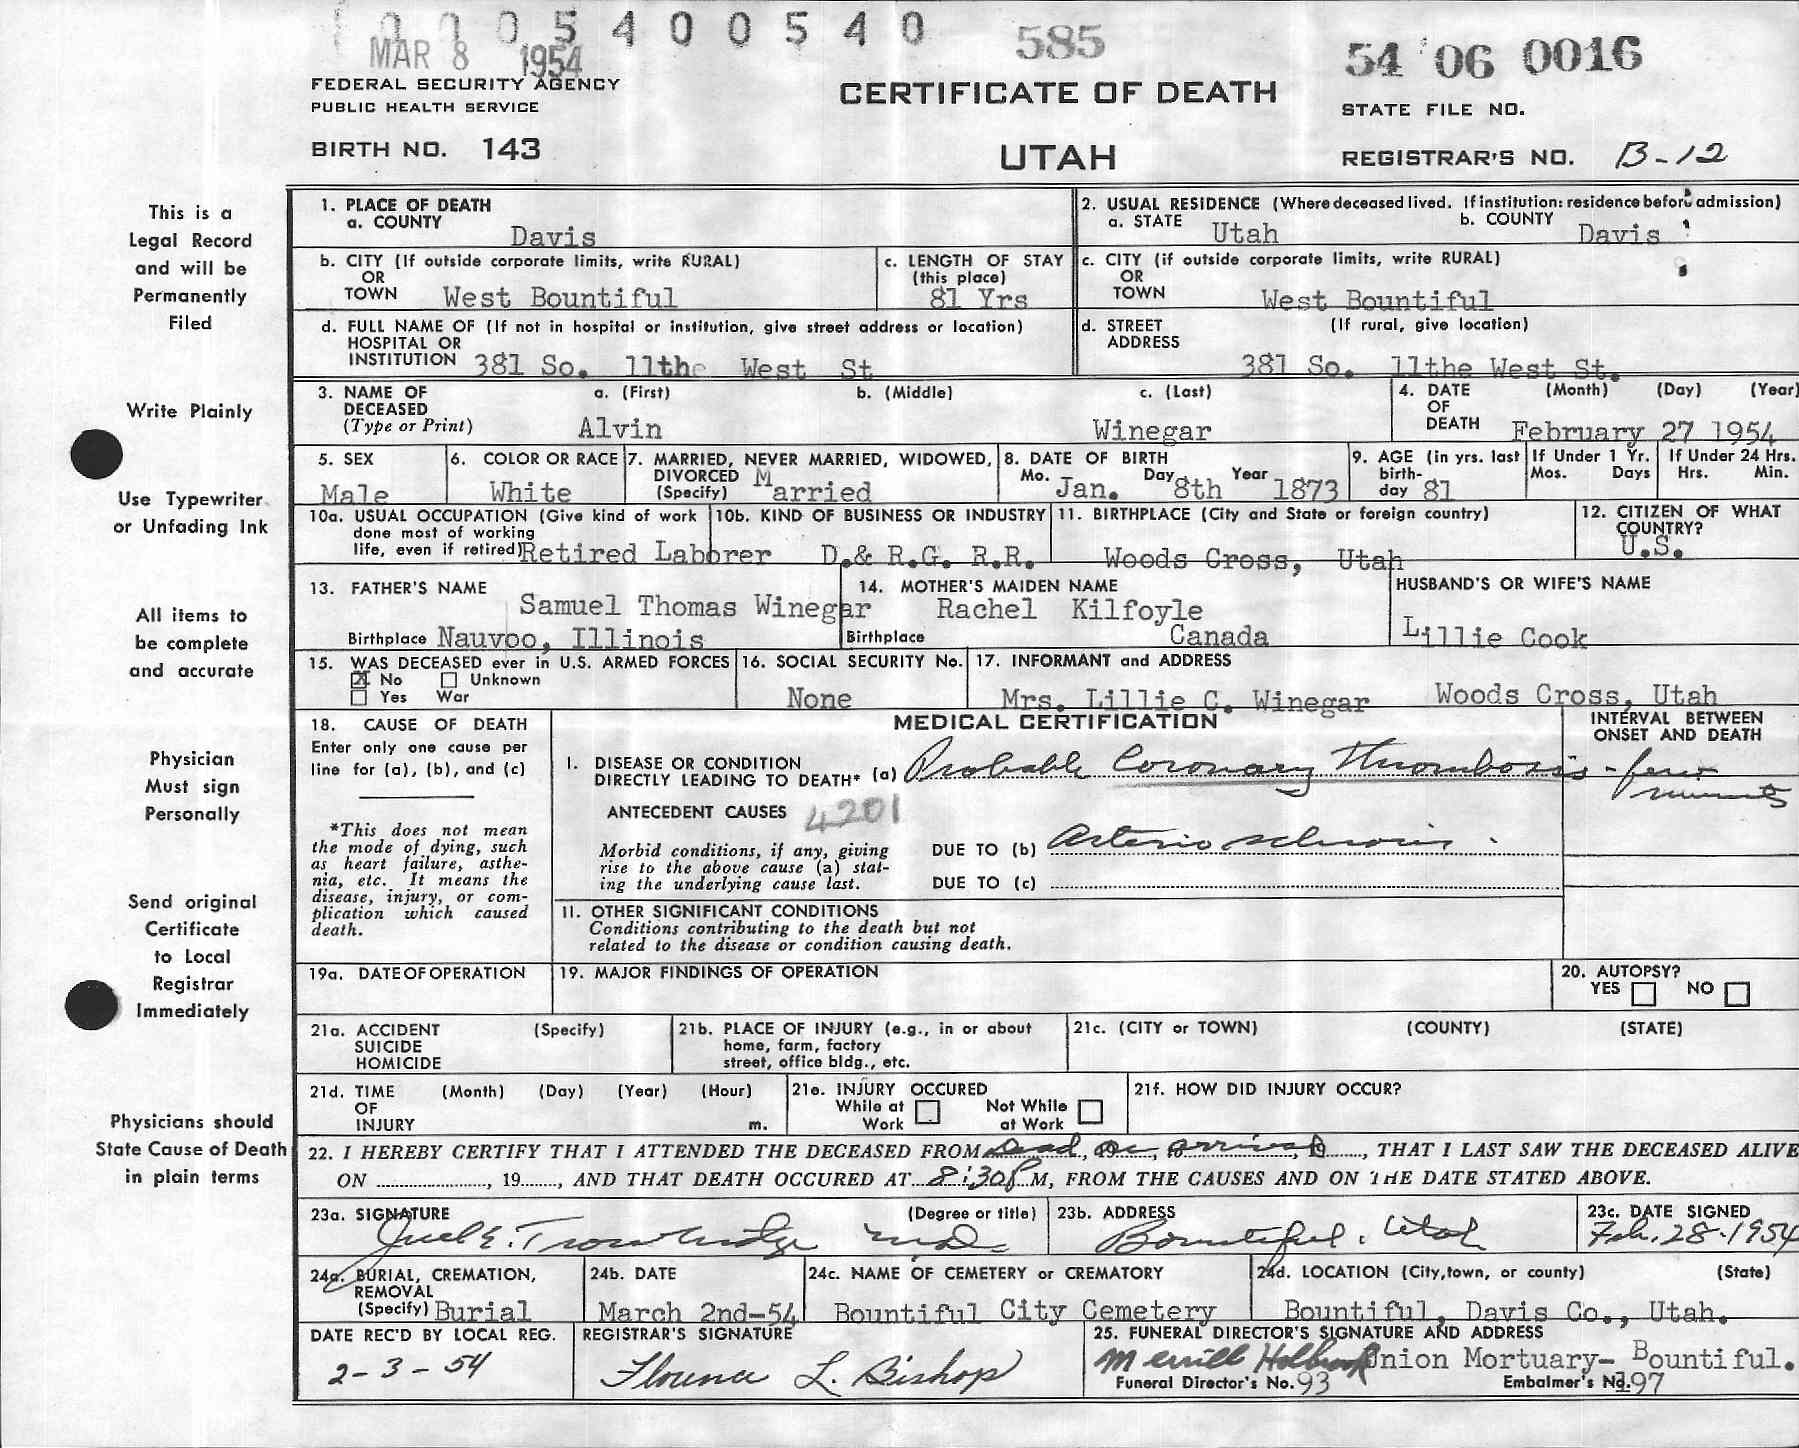 0 0 0 5 4 0 0 5 4 0
MAR 8 1954
585
54 06 0016
FEDERAL SECURITY AGENCY
PUBLIC HEALTH SERVICE
CERTIFICATE OF DEATH
STATE FILE NO.
BIRTH NO. 143
UTAH
REGISTRAR'S NO. B-12
This is a
Legal Record
and will be
Permanently
Filed
Write Plainly
Use Typewriter
or Unfading Ink
All items to
be complete
and accurate
Physician
Must sign
Personally
Send original
Certificate
to Local
Registrar
Immediately
Physicians should
State Cause of Death
in plain terms
1. PLACE OF DEATH
a. COUNTY Davis
2. USUAL RESIDENCE (Where deceased lived. If institution: residence before admission)
a. STATE Utah b. COUNTY Davis
b. CITY (If outside corporate limits, write RURAL)
OR
TOWN West Bountiful
c. LENGTH OF STAY
(this place)
81 Yrs
c. CITY (if outside corporate limits, write RURAL)
OR
TOWN West Bountiful
d. FULL NAME OF (If not in hospital or institution, give street address or location)
HOSPITAL OR
INSTITUTION 381 So. 11the West St
d. STREET (If rural, give location)
ADDRESS
381 So. 11the West St.
3. NAME OF a. (First) b. (Middle) c. (Last)
DECEASED
(Type or Print) Alvin Winegar
4. DATE (Month) (Day) (Year)
OF
DEATH February 27 1954
5. SEX
Male
6. COLOR OR RACE
White
7. MARRIED, NEVER MARRIED, WIDOWED,
DIVORCED
(Specify) Married
8. DATE OF BIRTH
Mo. Jan. Day 8th Year 1873
9. AGE (in yrs. last
birth-
day 81
If Under 1 Yr.
Mos. Days
If Under 24 Hrs.
Hrs. Min.
10a. USUAL OCCUPATION (Give kind of work
done most of working
life, even if retired) Retired Laborer
10b. KIND OF BUSINESS OR INDUSTRY
D.& R.G. R.R.
11. BIRTHPLACE (City and State or foreign country)
Woods Cross, Utah
12. CITIZEN OF WHAT
COUNTRY?
U.S.
13. FATHER'S NAME
Samuel Thomas Winegar
Birthplace Nauvoo, Illinois
14. MOTHER'S MAIDEN NAME
Rachel Kilfoyle
Birthplace Canada
HUSBAND'S OR WIFE'S NAME
Lillie Cook
15. WAS DECEASED ever in U.S. ARMED FORCES
No Unknown
Yes War
16. SOCIAL SECURITY No.
None
17. INFORMANT and ADDRESS
Mrs. Lillie C. Winegar Woods Cross, Utah
18. CAUSE OF DEATH
Enter only one cause per
line for (a), (b), and (c)
*This does not mean
the mode of dying, such
as heart failure, asthe-
nia, etc. It means the
disease, injury, or com-
plication which caused
death.
MEDICAL CERTIFICATION
INTERVAL BETWEEN
ONSET AND DEATH
I. DISEASE OR CONDITION
DIRECTLY LEADING TO DEATH* (a) Probable Coronary Thrombosis - few
minutes
ANTECEDENT CAUSES 4201
Morbid conditions, if any, giving
rise to the above cause (a) stat-
ing the underlying cause last.
DUE TO (b) Arteriosclerosis.
DUE TO (c)
II. OTHER SIGNIFICANT CONDITIONS
Conditions contributing to the death but not
related to the disease or condition causing death.
19a. DATE OF OPERATION
19. MAJOR FINDINGS OF OPERATION
20. AUTOPSY?
YES NO
21a. ACCIDENT (Specify)
SUICIDE
HOMICIDE
21b. PLACE OF INJURY (e.g., in or about
home, farm, factory
street, office bldg., etc.
21c. (CITY or TOWN) (COUNTY) (STATE)
21d. TIME (Month) (Day) (Year) (Hour)
OF
INJURY m.
21e. INJURY OCCURED
While at Not While
Work at Work
21f. HOW DID INJURY OCCUR?
22. I HEREBY CERTIFY THAT I ATTENDED THE DECEASED FROM Dead on arrival, THAT I LAST SAW THE DECEASED ALIVE
ON ........, 19......, AND THAT DEATH OCCURED AT 8:30P M, FROM THE CAUSES AND ON THE DATE STATED ABOVE.
23a. SIGNATURE (Degree or title)
Juel E. Trowbridge M.D.
23b. ADDRESS
Bountiful, Utah
23c. DATE SIGNED
Feb. 28-1954
24a. BURIAL, CREMATION,
REMOVAL
(Specify) Burial
24b. DATE
March 2nd-54
24c. NAME OF CEMETERY or CREMATORY
Bountiful City Cemetery
24d. LOCATION (City, town, or county) (State)
Bountiful, Davis Co., Utah.
DATE REC'D BY LOCAL REG.
2-3-54
REGISTRAR'S SIGNATURE
L. Bishop
25. FUNERAL DIRECTOR'S SIGNATURE AND ADDRESS
Merrill Holbrook Union Mortuary- Bountiful.
Funeral Director's No. 93 Embalmer's No. 197